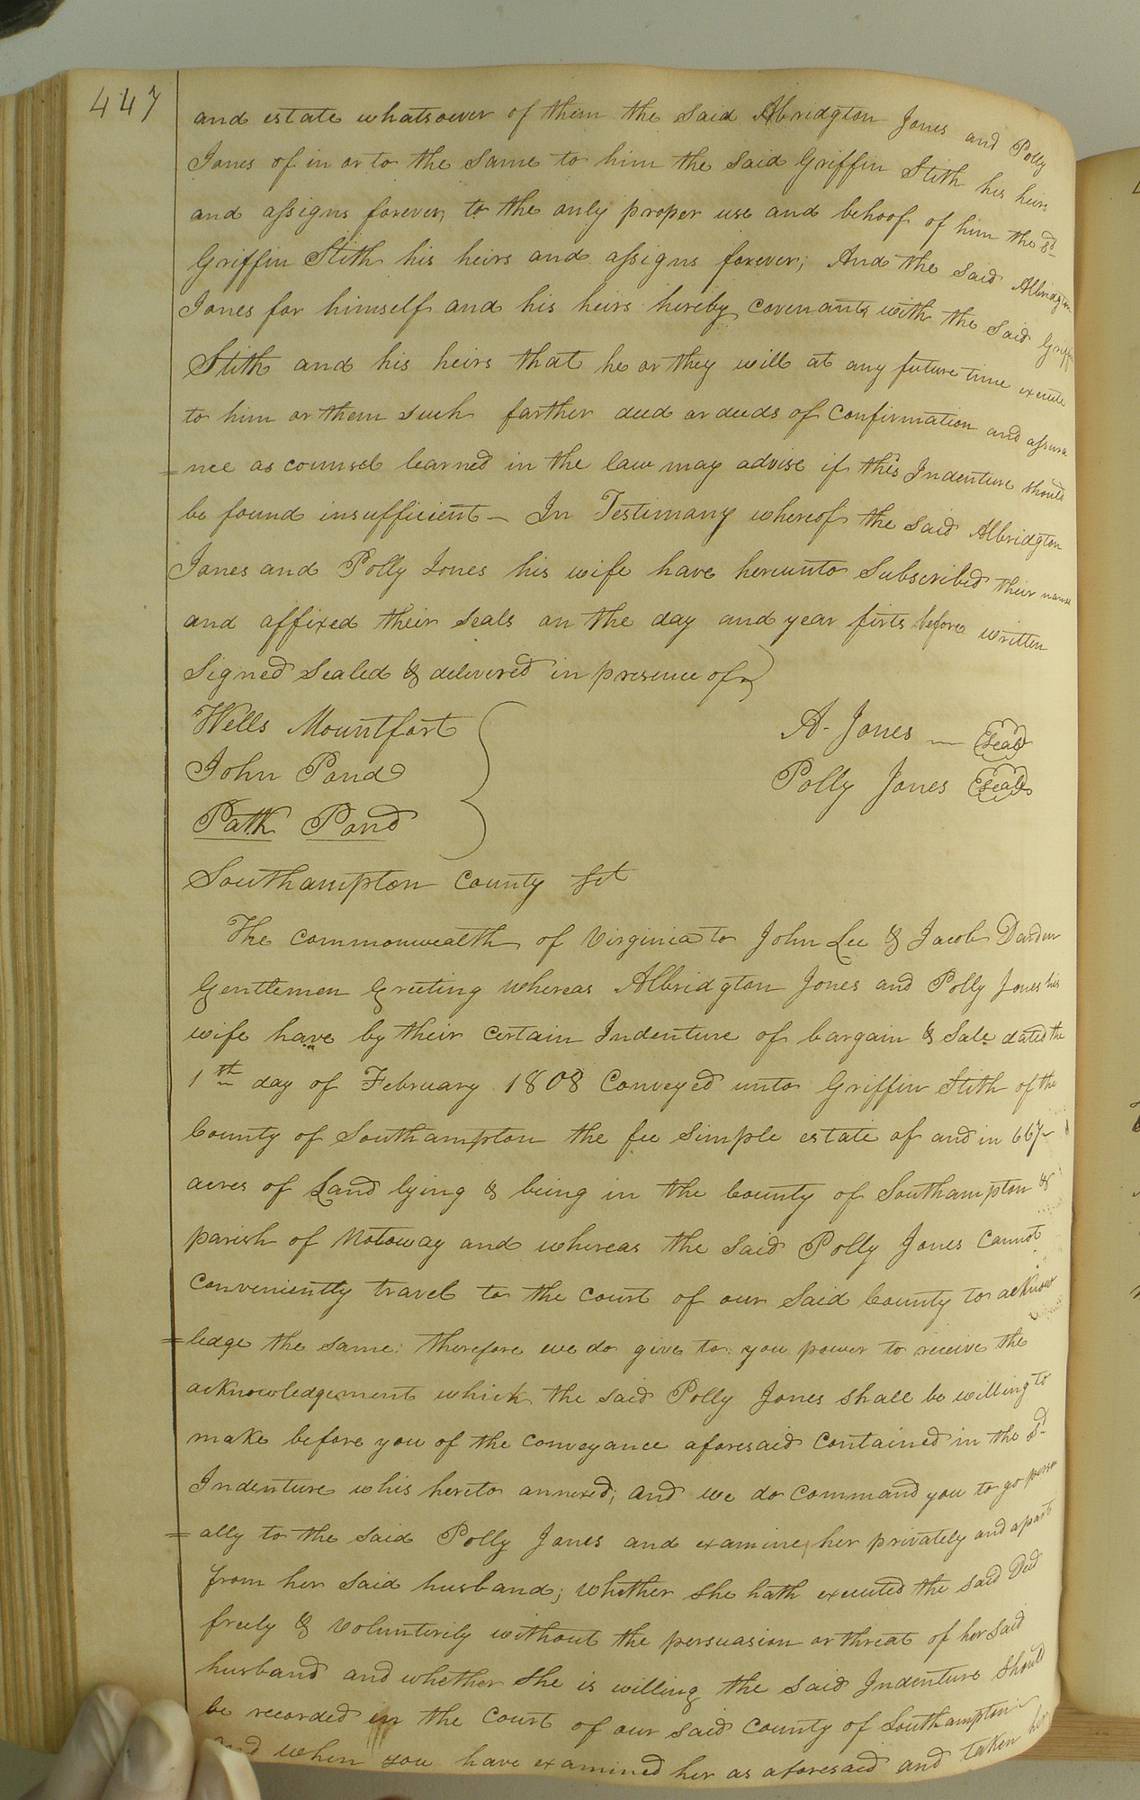 447
and estate whatsoever of them the said Albridgton Jones and Polly
Jones of in or to the same to him the said Griffin Stith his heirs
and assigns forever, to the only proper use and behoof of him the sd
Griffin Stith his heirs and assigns forever; And the said Albridgton
Jones for himself and his heirs hereby covenants with the said Griffin
Stith and his heirs that he or they will at any future time execute
to him or them such farther deed or deeds of Confirmation and assura
=nce as counsel learned in the law may advise if this Indenture should
be found insufficient – In Testimony whereof the said Albridgton
Jones and Polly Jones his wife have hereunto Subscribed their names
and affixed their seals on the day and year firts before written
Signed Sealed & delivered in presence of
Wells Mountfort
A. Jones — Seal
John Pond
Polly Jones Seal
Path Pond
Southampton County Sct
The commonwealth of Virginia to John Lee & Jacob Darden
Gentlemen Greeting whereas Albridgton Jones and Polly Jones his
wife have by their certain Indenture of bargain & Sale dated the
1th day of February 1808 Conveyed unto Griffin Stith of the
County of Southampton the fee simple estate of and in 667
acres of Land lying & being in the County of Southampton &
parish of Notoway and whereas the said Polly Jones Cannot
conveniently travel to the court of our said County to acknow
=ledge the same: therefore we do give to you power to receive the
acknowledgement which the said Polly Jones shall be willing to
make before you of the conveyance aforesaid contained in the sd
Indenture whis hereto annexed; and we do command you to go person
=ally to the said Polly Jones and examine her privately and apart
from her said husband; whether she hath executed the said Deed
freely & volunterily without the persuasion or threat of her said
husband and whether she is willing the said Indenture should
be recorded in the Court of our said County of Southampton
and when you have examined her as aforesaid and taken her